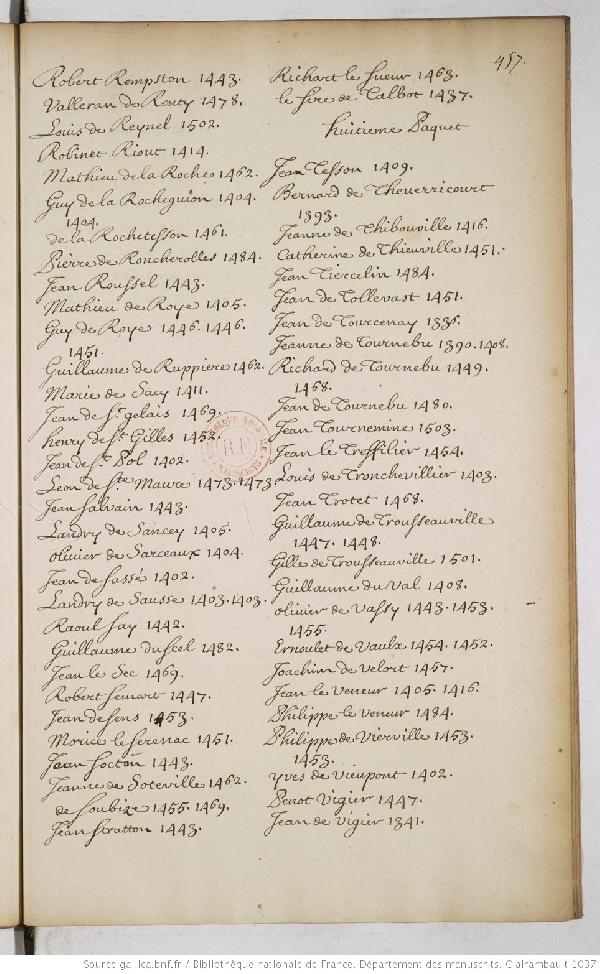 457.
Robert Rempston 1443.
Valleran de Renty 1478.
Louis de Reynel 1502.
Robinet Riout 1414.
Mathieu de la Roche 1462.
Guy de la Rocheguion 1404.
1404.
de la Rochetesson 1461.
Pierre de Roncherolles 1484.
Jean Roussel 1443.
Mathieu de Roye 1405.
Guy de Roye 1446. 1446.
1451.
Guillaume de Ruppiere 1462.
Marie de Sacy 1411.
Jean de St. gelais 1469.
henry de St. Gilles 1452.
Jean de St. Pol 1402.
Leon de Ste. Maure 1473. 1473.
Jean Salvain 1443.
Landry de Sancey 1405.
olivier de Sarceaux 1404.
Jean de Sassé 1402.
Landry de Sausse 1403. 1403.
Raoul Say 1442.
Guillaume du Scel 1482.
Jean le Sec 1469.
Robert Semart 1447.
Jean de Sens 1453.
Morice le Serenac 1451.
Jean Socton 1443.
Jeanne de Soteville 1462.
de Soubize 1455. 1469.
Jean Stratton 1443.
Richart le Sueur 1463.
le Sire de Talbot 1437.
huitieme Paquet
Jean Tesson 1409.
Bernard de Theuerricourt
1393.
Jeanne de Thibouville 1416.
Catherine de Thieuville 1451.
Jean Tiercelin 1484.
Jean de Tollevast 1451.
Jean de Tourcenay
Jeanne de Tournebu 1390. 1408.
Richard de Tournebu 1449.
1468.
Jean de Tournebu 1480.
Jean Tournemine 1503.
Jean le Treffilier 1454.
Louis de Tronchevillier 1403.
Jean Trotet 1468.
Guillaume de Trousseauville
1447. 1448.
Gille de Trousseauville 1501.
Guillaume du Val 1408.
olivier de Vassy 1443. 1453.
1455.
Ernoulet de Vaulx 1454. 1452.
Joachim de Velort 1457.
Jean le Veneur 1405. 1416.
Philippe le Veneur 1484.
Philippe de Vierville 1453.
1453.
yves de Vieupont 1402.
Penot Vigier 1447.
Jean de Vigier 1341.
R.F.
Source gallica.bnf.fr / Bibliothèque nationale de France. Département des manuscrits. Clairambault 1037